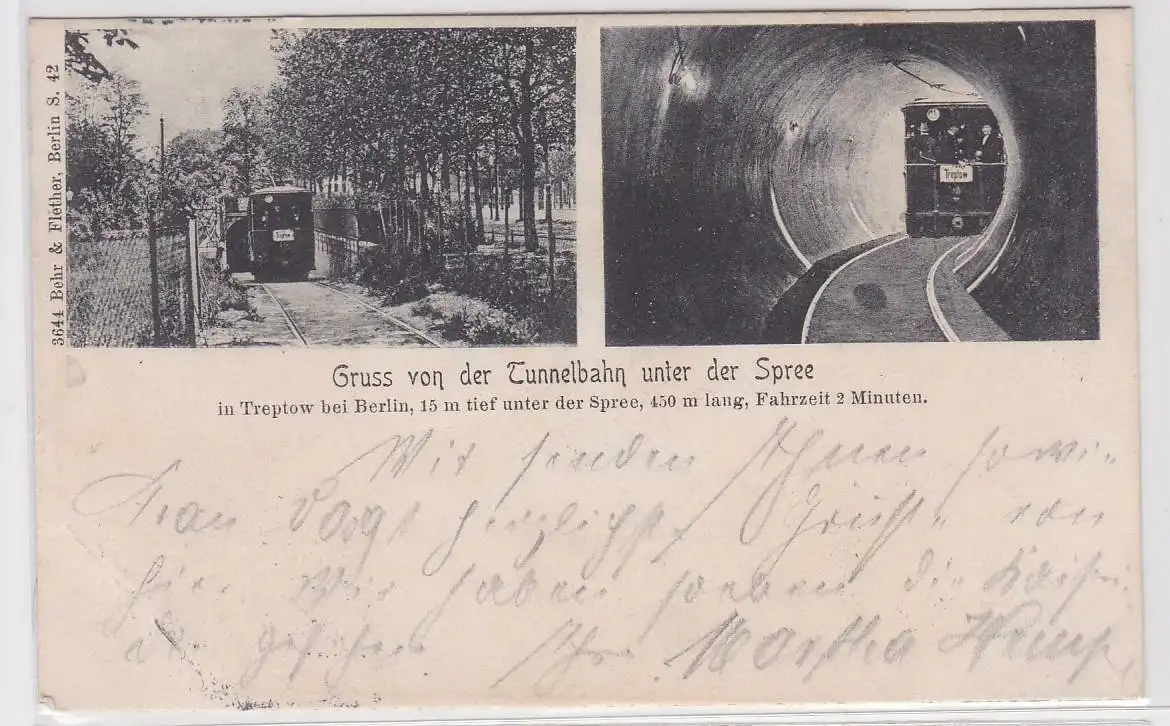 3644 Behr & Flether, Berlin S. 42
Treptow
Treptow
Gruss von der Tunnelbahn unter der Spree
in Treptow bei Berlin, 15 m tief unter der Spree, 450 m lang, Fahrzeit 2 Minuten.
Wir senden Ihnen sowie
Frau Vogt herzlichste Grüsse von
hier. Wir haben soeben die
gesehen Ihre Martha